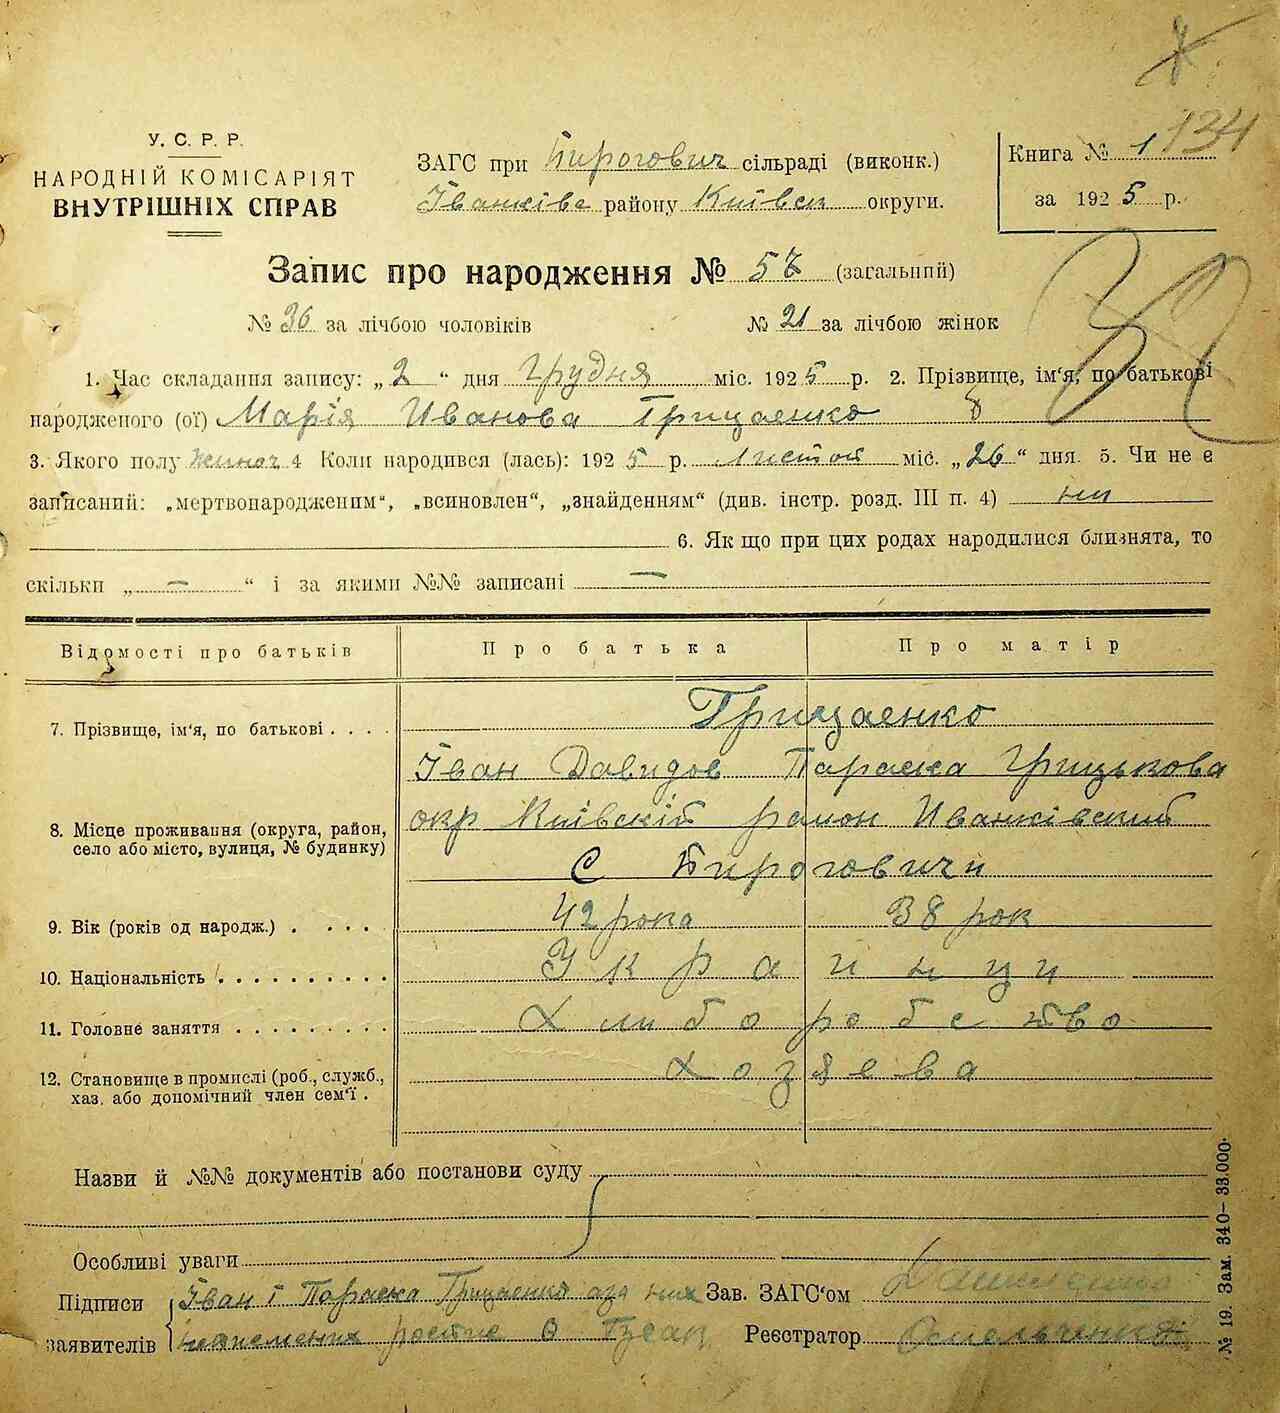 134
У. С. Р. Р.
НАРОДНІЙ КОМІСАРІЯТ
ВНУТРІШНІХ СПРАВ
ЗАГС при Пирогович сільраді (виконк.)
Іванківс району Київск округи.
Книга № 1
за 1925 р.
Запис про народження № 57 (загальний)
№ 36 за лічбою чоловіків № 21 за лічбою жінок
1. Час складання запису: „2“ дня Грудня міс. 1925 р. 2. Прізвище, ім'я, по батькові
народженого (ої) Марія Иванова Грицаенко
3. Якого полу жиноч 4 Коли народився (лась): 1925 р. Листоп міс. „26“ дня. 5. Чи не є
записаний: „мертвонародженим“, „всиновлен“, „знайденням“ (див. інстр. розд. III п. 4) ни
6. Як що при цих родах народилися близнята, то
скільки „ — “ і за якими №№ записані —
Відомості про батьків Про батька Про матір
7. Прізвище, ім'я, по батькові . . . . Грицаенко
Іван Давидов Параска Грицькова
8. Місце проживання (округа, район, село або місто, вулиця, № будинку) окр Київскій район Иванківский
С Пироговичи
9. Вік (років од народж.) . . . . 42 рока 38 рок
10. Національність . . . . . . . . . . Украинци
11. Головне заняття . . . . . . . . . Хлиборобство
12. Становище в промислі (роб., служб., хаз. або допомічний член сем'ї . хозяева
Назви й №№ документів або постанови суду
Особливі уваги
Підписи Іван і Параска Грицаенки аза них Зав. ЗАГС'ом
заявителів неписмених роспис Реєстратор Омельченко
№ 19. Зам. 340– 33.000.